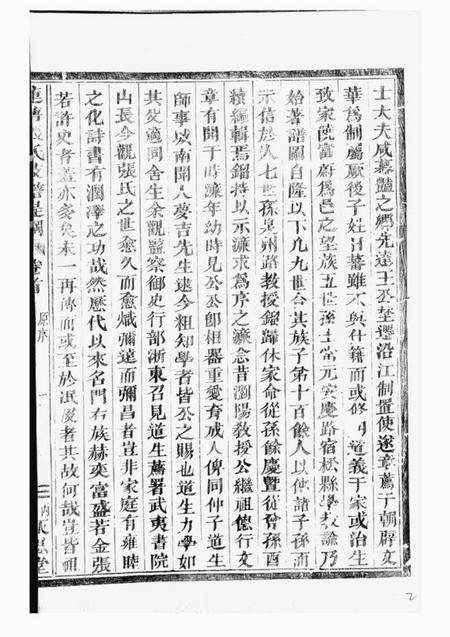 士大夫咸慕豔之鄉先達王丞奎選沿江制置使遂章薦于朝辟文
華爲制屬厥後子姓日蕃雖不與仕籍而或修道義于家或治生
致家饒富蔚爲邑之望族五世孫士常元安慶路宿松縣學教諭乃
始著譜圖自隆以下凡九世合其族子弟十百餘人以仲諸子孫而
示信於人七世孫泉州路教授鎦歸休家命從孫餘慶暨從曾孫酉
續編輯焉鎦持以示濂求爲序之濂念昔瀏陽教授公繼祖德行文
章有聞于時濂年幼時見公公卽相器重愛育成人俾同仲子道生
師事城南聞人夢吉先生逮今粗知學者皆公之賜也道生力學如
其父適同舍生余觀監察御史行部浙東召見道生薦署武夷書院
山長今觀張氏之世愈久而愈熾彌遠而彌昌者豈非家庭有雍睦
之化詩書有潤澤之功哉然歷代以來名門右族赫奕富盛若金張
若許史者蓋亦多矣未一再傳而或至於泯沒者其故何哉豈皆
張氏 譜 卷首 原序 一